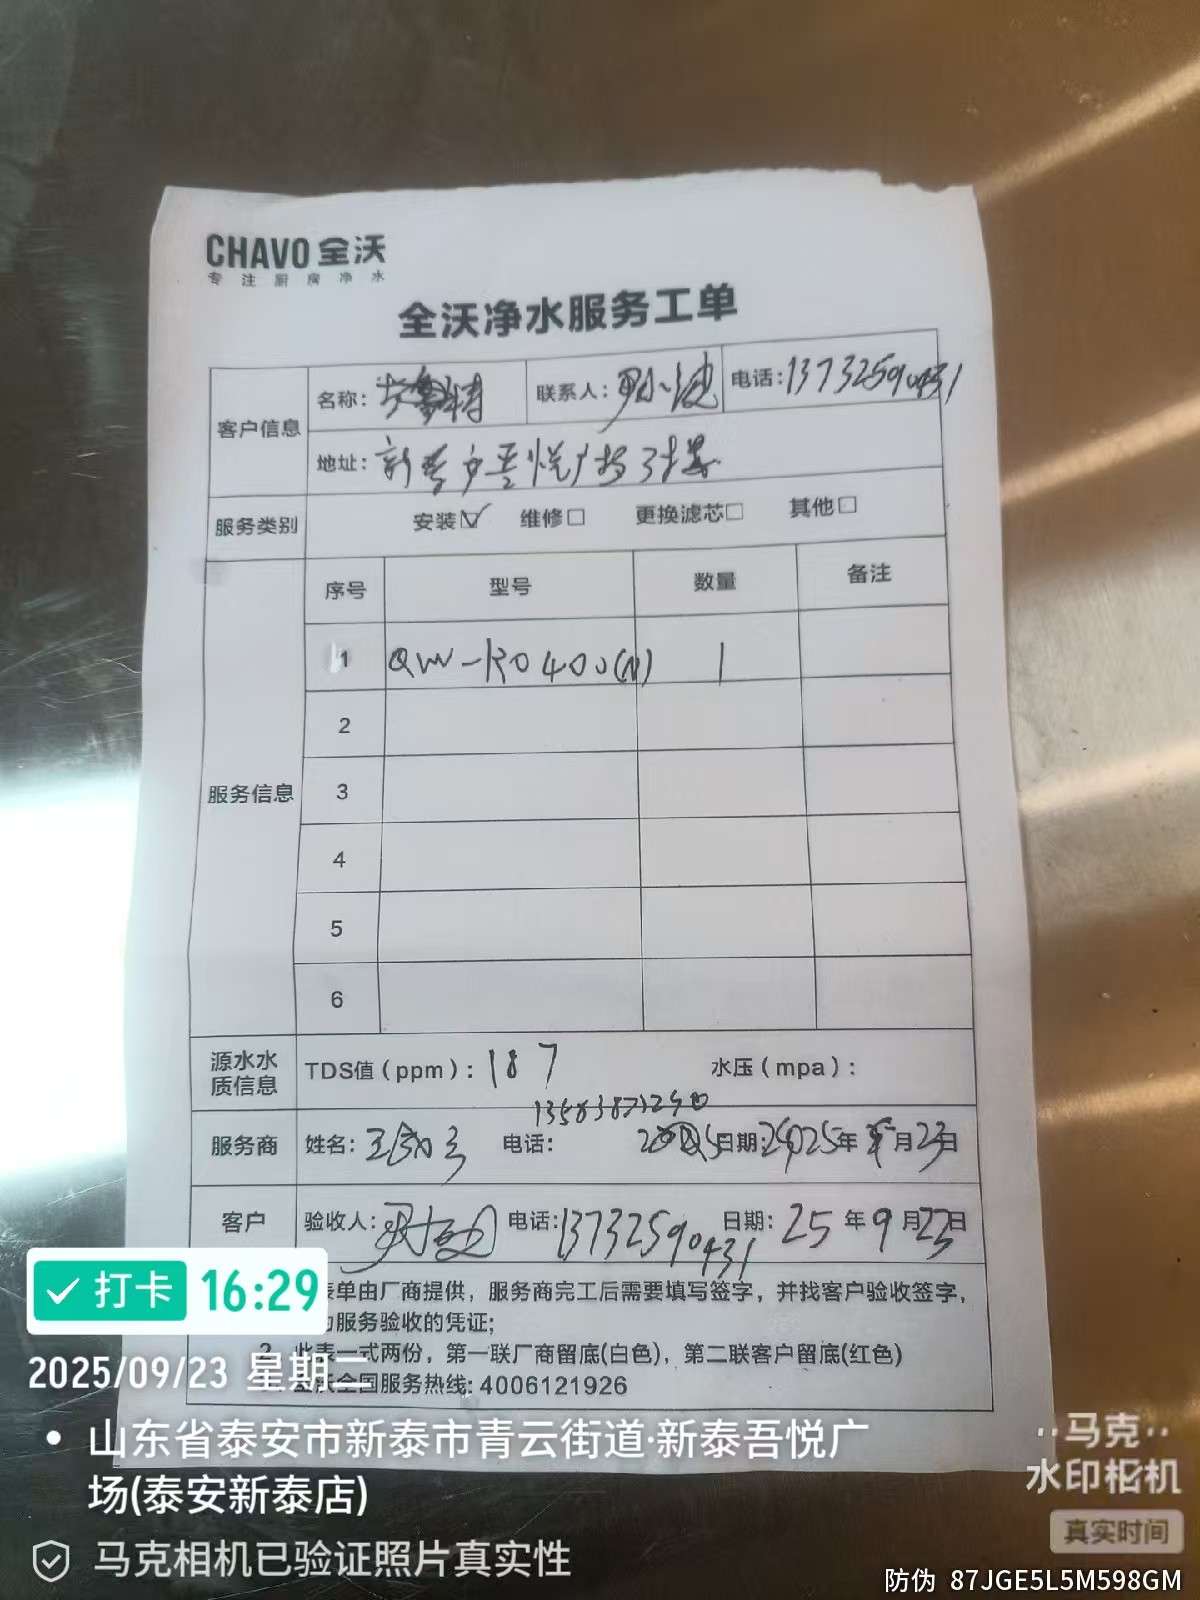 CHAVO 全沃
专注厨房净水
全沃净水服务工单
客户信息 名称: 联系人: 电话:13732590431
地址: 新 吾悦广场
服务类别 安装☑ 维修□ 更换滤芯□ 其他□
服务信息 序号 型号 数量 备注
1 QW-RO400(N) 1
2
3
4
5
6
源水水质信息 TDS值(ppm): 187 水压(mpa):
服务商 姓名: 王 电话: 日期: 2025年 月23日
客户 验收人: 电话:13732590431 日期: 25年9月23日
表单由厂商提供，服务商完工后需要填写签字，并找客户验收签字，
为服务验收的凭证;
2. 此表一式两份，第一联厂商留底(白色)，第二联客户留底(红色)
全沃全国服务热线: 4006121926
打卡 16:29
2025/09/23 星期二
山东省泰安市新泰市青云街道·新泰吾悦广
场(泰安新泰店)
马克相机已验证照片真实性
马克
水印相机
真实时间
防伪 87JGE5L5M598GM